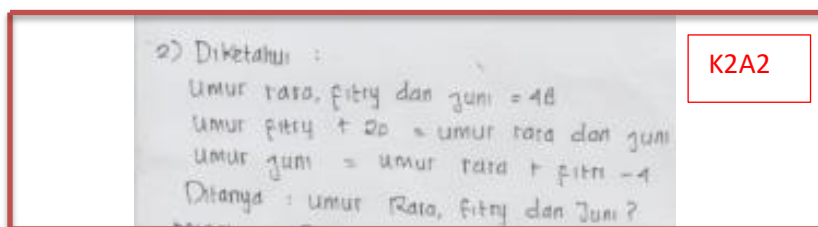 2) Diketahui :
K2A2
Umur rara, fitry dan juni = 48
Umur fitry + 20 = umur rara dan juni
Umur juni = umur rara + fitri - 4
Ditanya : umur Rara, fitry dan Juni ?